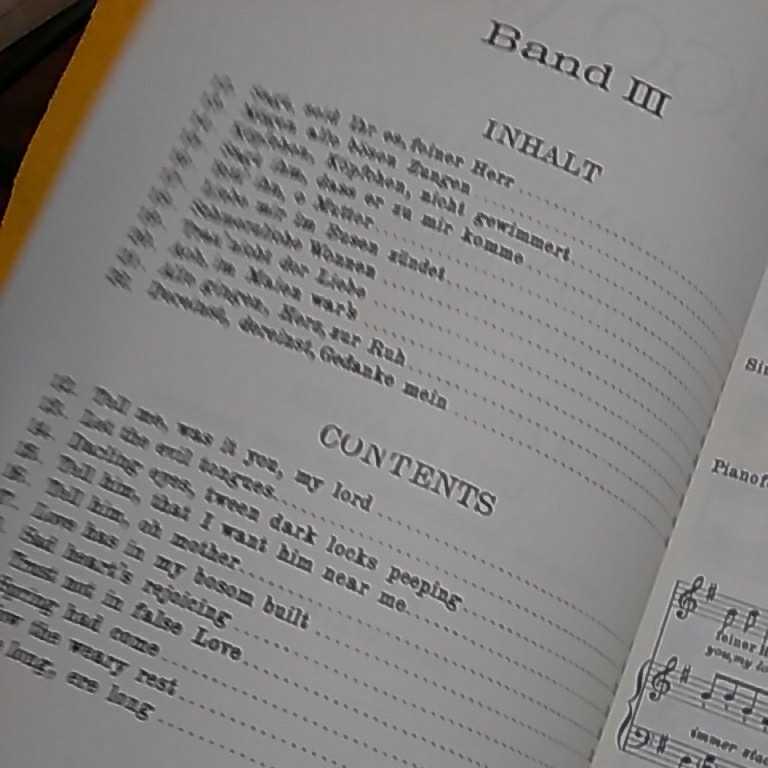 Band III
INHALT
Seid Ihr es, feiner Herr
Mögen alle bösen Zungen
Köpfchen, Köpfchen, nicht gewimmert
Sagt ihm, dass er zu mir komme
Bitt' ihn, o Mutter
Liebe mir im Busen zündet
Schmerzliche Wonnen
Trau nicht der Liebe
Ach, im Maien war's
Alle gingen, Herz, zur Ruh
Dereinst, dereinst, Gedanke mein
CONTENTS
Tell me, was it you, my lord
Let the evil tongues
Darling eyes, tween dark locks peeping
Tell him, that I want him near me
Tell him, oh mother
Love has in my bosom built
Sad heart's rejoicing
Trust not in false Love
had come
the weary rest
long, ere long
Pianof
feiner H
you, my lo
immer stac